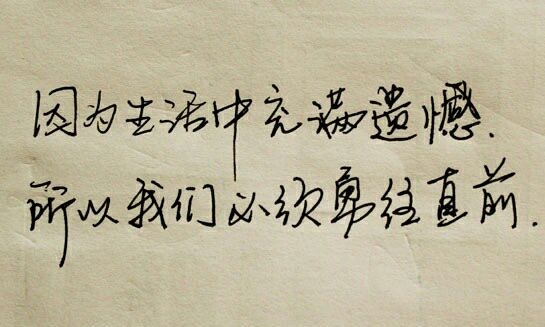 因为生活中充满遗憾.
所以我们必须勇往直前.